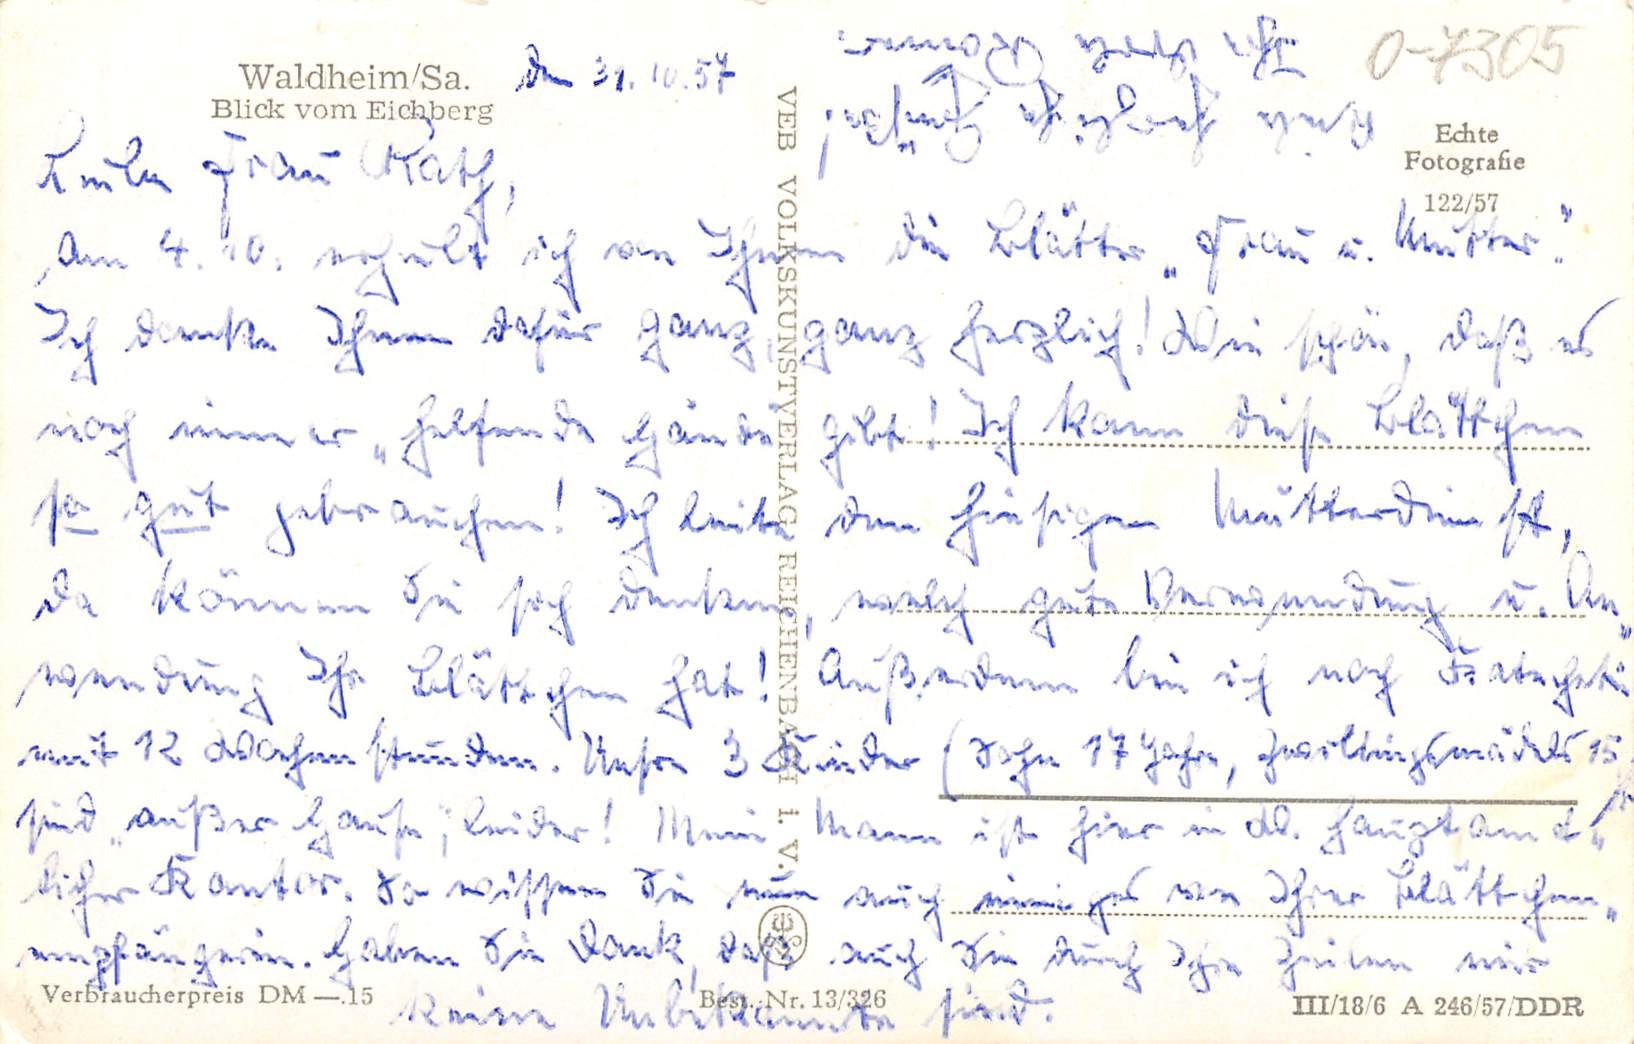 Waldheim/Sa. den 31.10.57
Blick vom Eichberg
0-7305
Echte
Fotografie
122/57
Liebe Frau Rath,
Am 4. 10. erhielt ich von Ihnen die Blätter „Frau u. Mutter".
Ich danke Ihnen dafür ganz, ganz herzlich! Wie schön, daß es
noch immer „helfende Hände" gibt! Ich kann diese Blättchen
so gut gebrauchen! Ich leite den hiesigen Mutterdienst,
da können Sie sich denken, welch gute Verwendung u. An-
wendung Ihr Blättchen hat! Außerdem bin ich noch Katechetin
mit 12 Wochenstunden. Unsre 3 Kinder (Sohn 17 Jahre, Zwillingsmädels 15
sind „außer Hause", leider! Mein Mann ist hier in W. hauptamt-
licher Kantor. So wissen Sie nun auch einiges von Ihrer Blättchen-
empfängerin. Haben Sie Dank, daß auch Sie durch Ihre Zeilen mir
keine Unbekannte sind.
Mit herzlichen Grüßen
Ihre
VEB VOLKSKUNSTVERLAG REICHENBACH I. V.
Verbraucherpreis DM —.15
Best.-Nr. 13/326
III/18/6 A 246/57/DDR